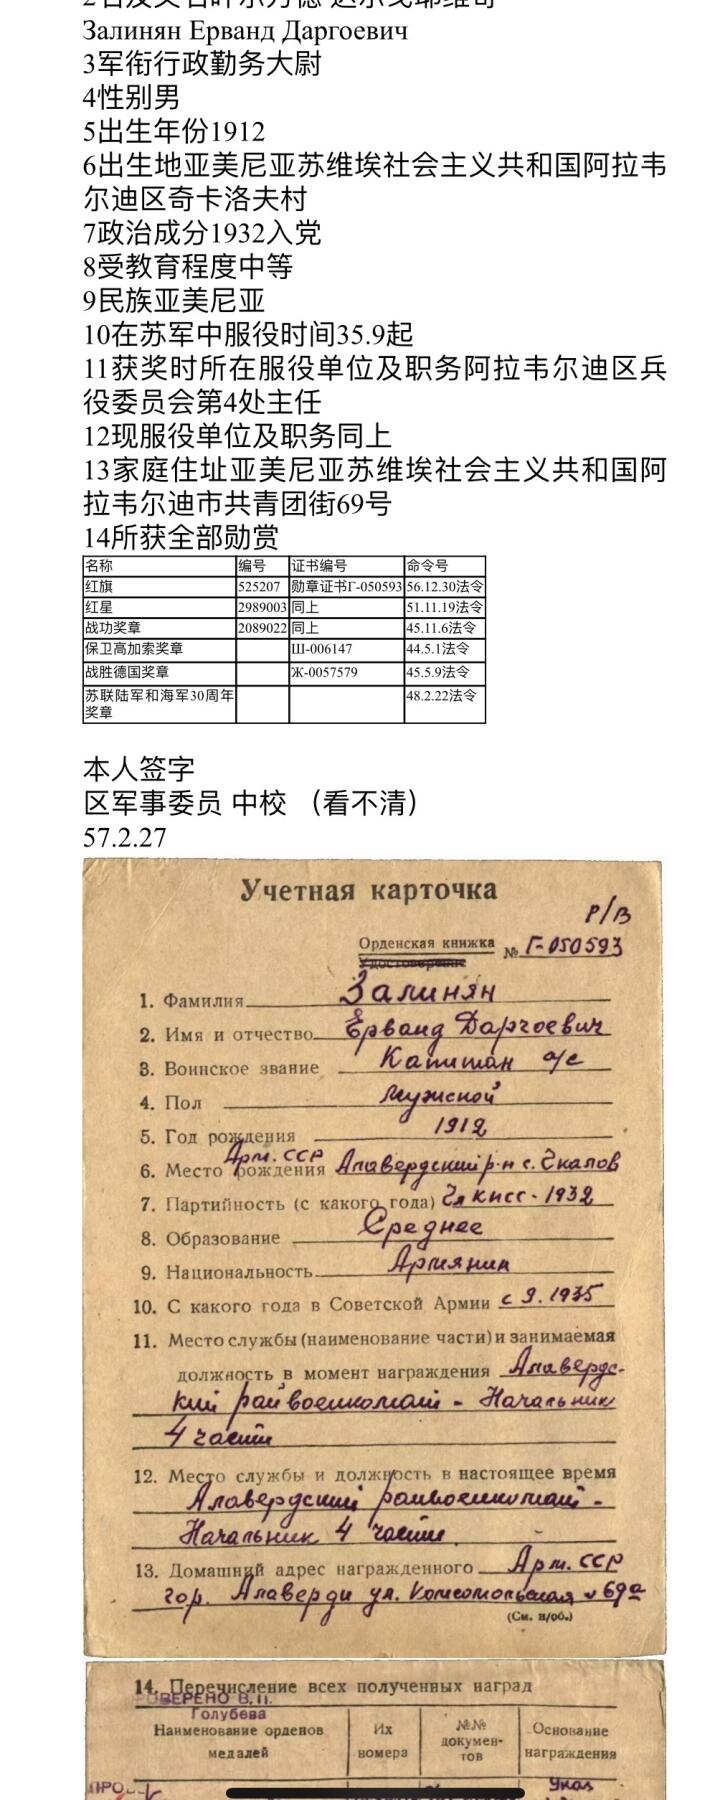 Залинян Ерванд Даргоевич
3军衔行政勤务大尉
4性别男
5出生年份1912
6出生地亚美尼亚苏维埃社会主义共和国阿拉韦
尔迪区奇卡洛夫村
7政治成分1932入党
8受教育程度中等
9民族亚美尼亚
10在苏军中服役时间35.9起
11获奖时所在服役单位及职务阿拉韦尔迪区兵
役委员会第4处主任
12现服役单位及职务同上
13家庭住址亚美尼亚苏维埃社会主义共和国阿
拉韦尔迪市共青团街69号
14所获全部勋赏
名称 编号 证书编号 命令号
红旗 525207 勋章证书Г-050593 56.12.30法令
红星 2989003 同上 51.11.19法令
战功奖章 2089022 同上 45.11.6法令
保卫高加索奖章 Ш-006147 44.5.1法令
战胜德国奖章 Ж-0057579 45.5.9法令
苏联陆军和海军30周年 48.2.22法令
奖章
本人签字
区军事委员 中校 （看不清）
57.2.27
Учетная карточка
Р/В
Орденская книжка № Г-050593
Удостоверение
1. Фамилия Залинян
2. Имя и отчество Ерванд Даргоевич
3. Воинское звание Капитан а/с
4. Пол мужской
5. Год рождения 1912
Арм. ССР
6. Место рождения Алавердский р-н с. Чкалов
7. Партийность (с какого года) Чл КПСС - 1932
8. Образование Среднее
9. Национальность Армянин
10. С какого года в Советской Армии с 9. 1935
11. Место службы (наименование части) и занимаемая
должность в момент награждения Алавердс-
кий райвоенкомат - Начальник
4 части
12. Место службы и должность в настоящее время
Алавердский райвоенкомат -
Начальник 4 части
13. Домашний адрес награжденного Арм. ССР
гор. Алаверди ул. Комсомольская 69а
(См. н/об.)
14. Перечисление всех полученных наград
ПРОВЕРЕНО В. П.
Голубева
Наименование орденов Их №№ Основание
медалей номера докумен- награждения
тов
Указ